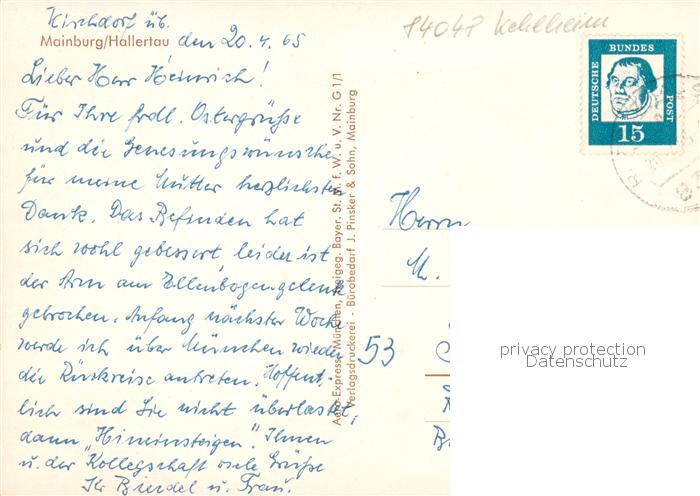 Kirchdorf üb.
Mainburg/Hallertau den 20.4.65
Lieber Herr Heinrich!
Für Ihre frdl. Ostergrüße
und die Genesungswünsche
für meine Mutter herzlichsten
Dank. Das Befinden hat
sich wohl gebessert, leider ist
der Arm am Ellenbogengelenk
gebrochen. Anfang nächster Woche
werde ich über München wieder
die Rückreise antreten. Hoffent-
lich sind Sie nicht überlastet,
dann "Hineinsteigen". Ihnen
u. der Kollegschaft viele Grüße
Ihr Bierdel u. Frau.
Aero-Express München, freigeg. Bayer. St. M. f. W. u. V. Nr. G 1/1
Verlagsdruckerei - Bürobedarf J. Pinsker & Sohn, Mainburg
84048 Kehlheim
DEUTSCHE
BUNDES
POST
15
Herrn
M.
53
privacy protection
Datenschutz